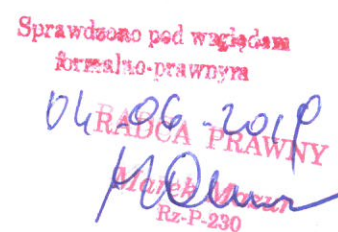 Sprawdzono pod względem
formalno-prawnym
04-06-2019
RADCA PRAWNY
Marek Mazur
Rz-P-230